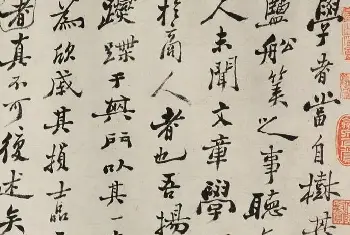 學者當自樹其
鹽船算之事聽
人未聞文章學
於商人者也吾揚
躞蹀于門以其一
為欣戚其損士品
者真不可復述矣